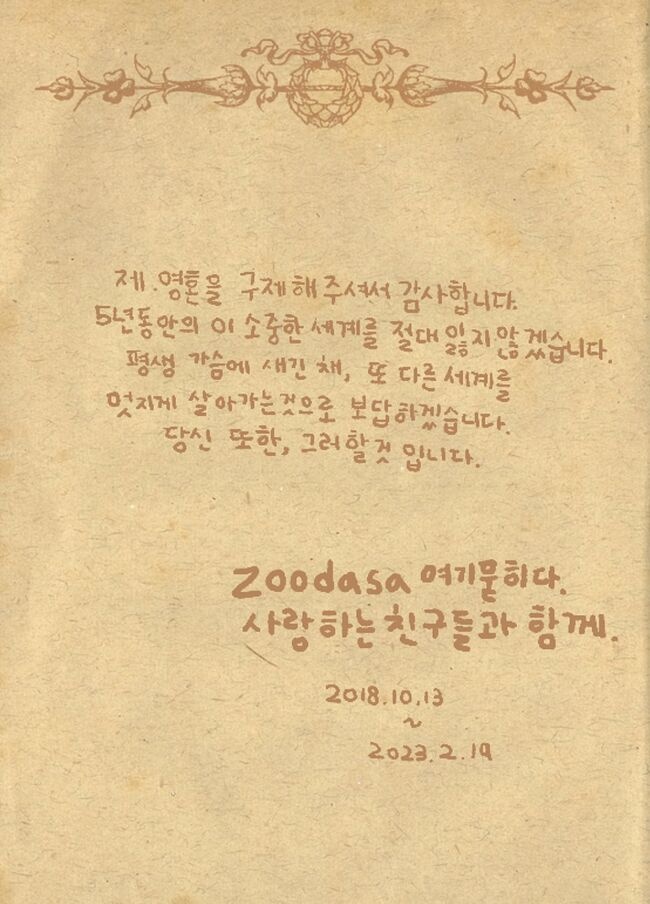 제 영혼을 구제해주셔서 감사합니다.
5년동안의 이 소중한 세계를 절대 잃지 않겠습니다.
평생 가슴에 새긴 채, 또 다른 세계를
멋지게 살아가는것으로 보답하겠습니다.
당신 또한, 그러할것 입니다.
zoodasa 여기묻히다.
사랑하는친구들과 함께.
2018.10.13
~
2023.2.19